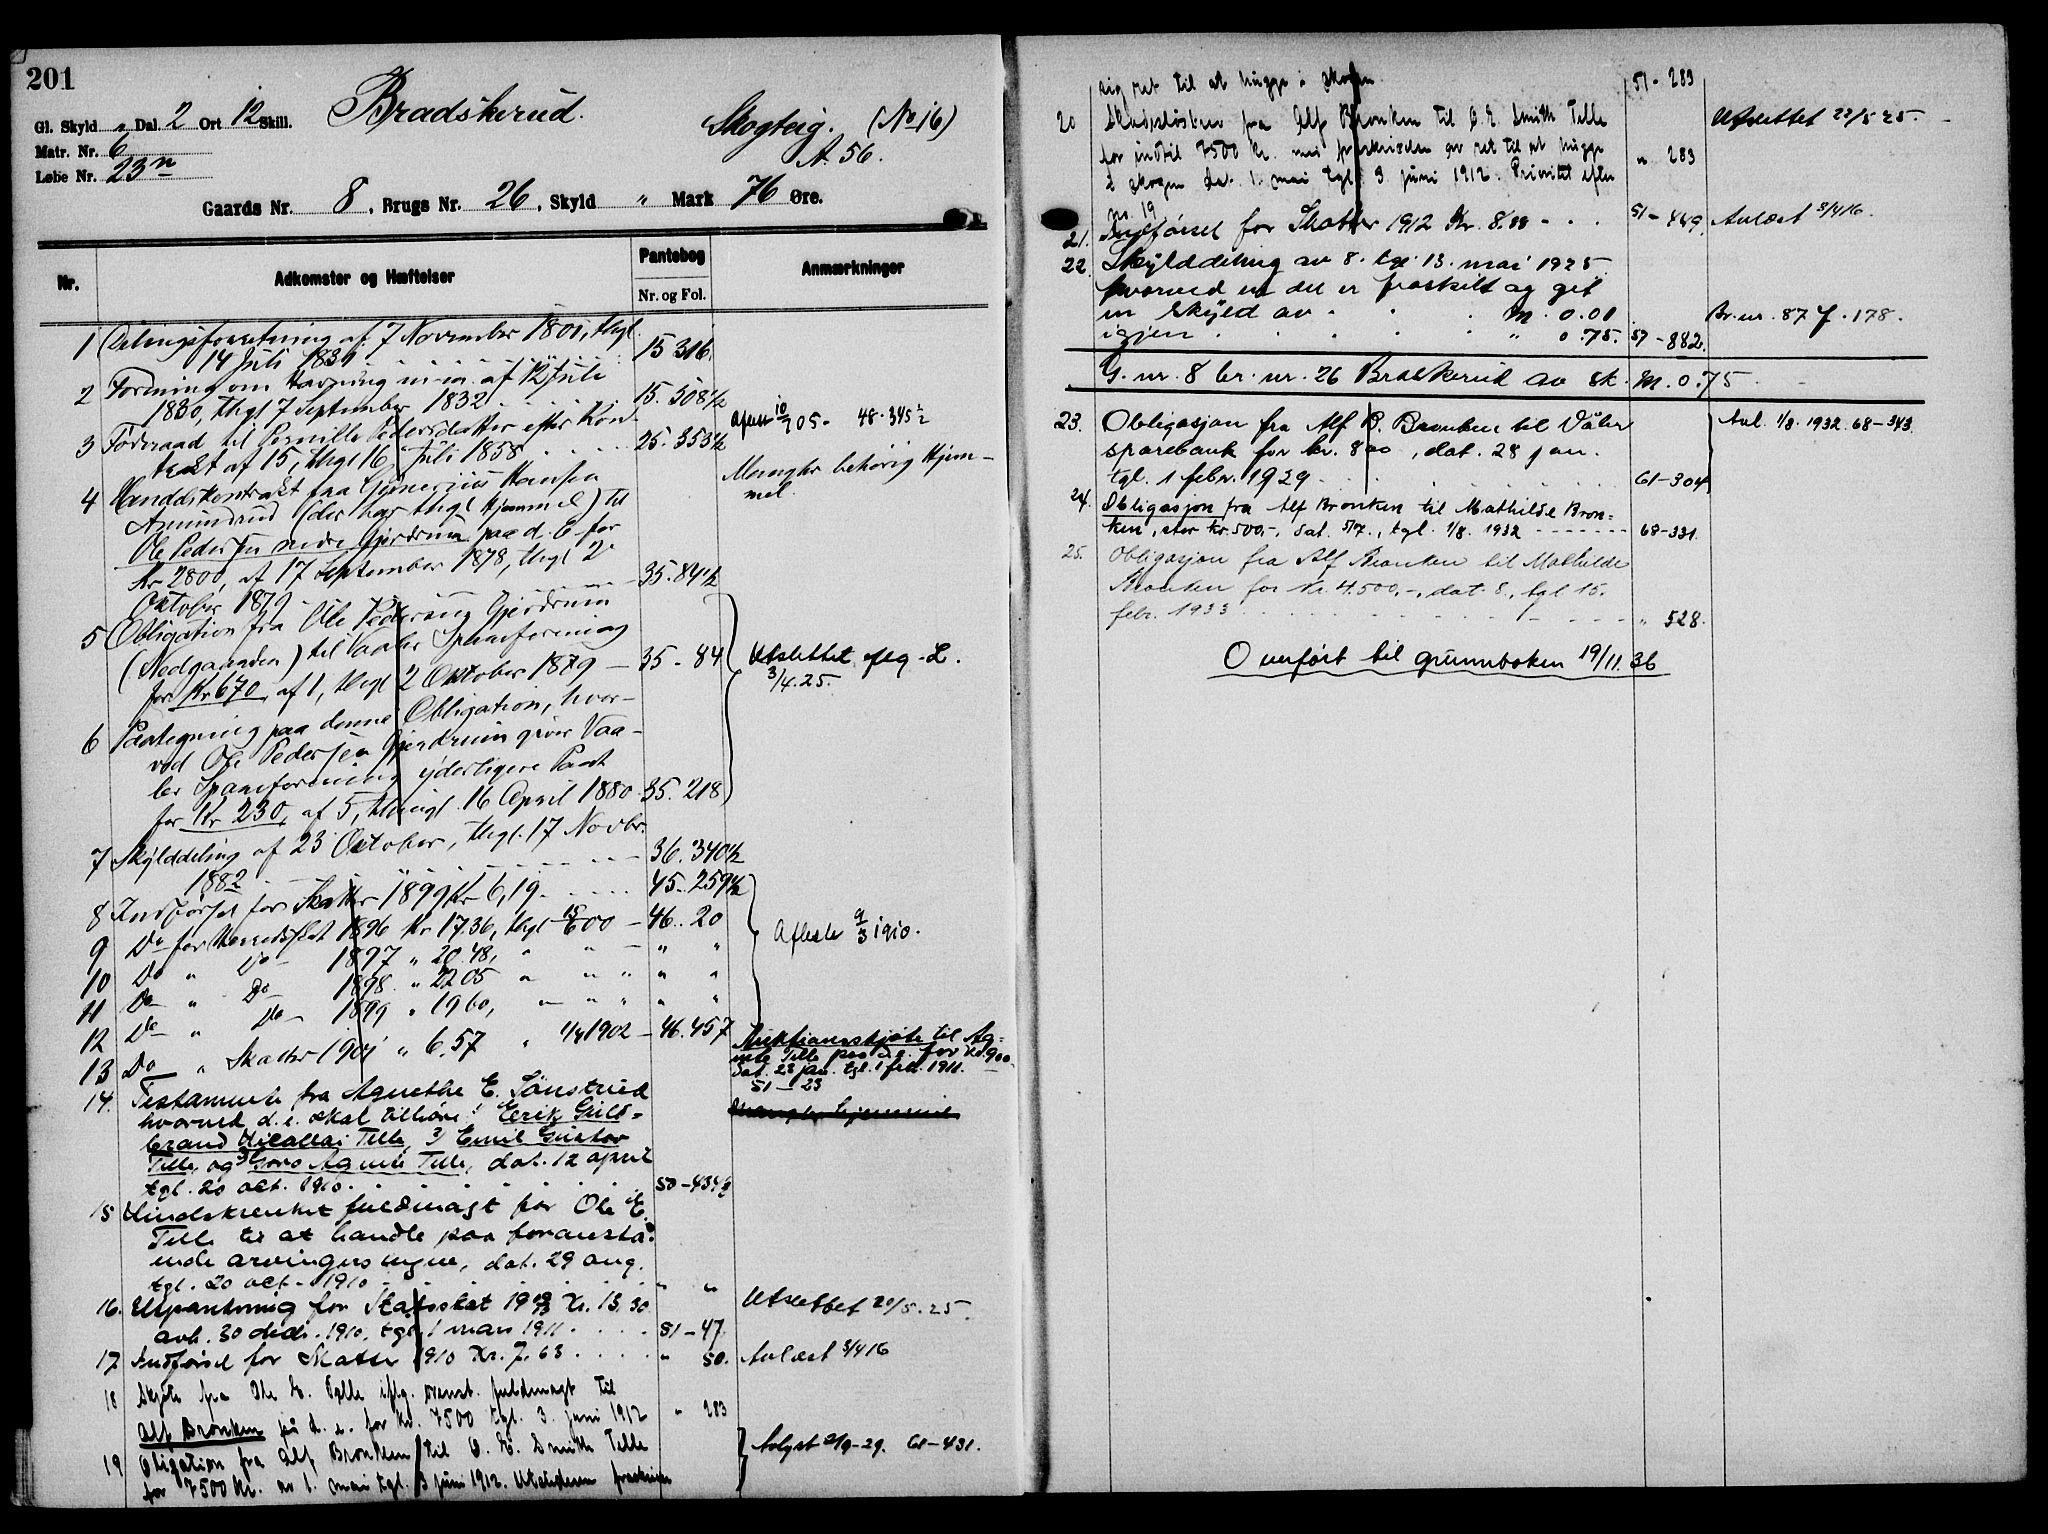 201
Gl. Skyld " Dal. 2 Ort 12 Skill.
Bradskerud.
Skogteig. (No 16)
A. 56.
Matr. Nr. 6
Løbe Nr. 23n
Gaards Nr. 8, Brugs Nr. 26, Skyld " Mark 76 Øre.
Nr.
Adkomster og Hæftelser
Pantebog
Nr. og Fol.
Anmærkninger
1 Delingsforretning af 7 November 1801, thgl.
14 Juli 1831 15 316.
2 Forening om Havning m.m. af 12 Juli
1830, thgl 7 September 1832 15. 508 1/2
3 Føderaad til Pernille Pedersdatter efter Kon-
trakt af 15, thgl 16 Juli 1858 25. 353 1/2
Aflæst 10/7 05. 48. 345 1/2
4 Mandskontrakt fra Hansen
Amundrud (der har thgl Hjemmel) til
Ole Pedersen nedre Gjerdrum paa d. E. for
Kr 2800, af 17 September 1878, thgl 2
Oktober 1879 35. 84 1/2
Mangler behørig Hjem-
mel.
5 Obligation fra Ole Pedersen Gjerdrum
(Nedgaarden) til Vaaler Spareforening
for Kr 670, af 1, thgl 2 Oktober 1879 - 35 - 84
Utslettet iflg. L.
3/4.25.
6 Paategning paa denne Obligation, hvor-
ved Ole Pedersen Gjerdrum giver Vaa-
ler Spareforening yderligere Pant
for Kr 230, af 5, thingl. 16 April 1880 35. 218
7 Skylddeling af 23 Oktober, thgl. 17 Novbr.
1882 36. 340 1/2
8 Indførsel for Skatter 1899 Kr 6,19 45. 259 1/2
9 Do for Herredsskat 1896 Kr 17.36, thgl 15/6 00 - 46. 20
10 Do " Do 1897 " 20.48, " " - " "
11 Do " Do 1898 " 22 05 " " " " "
12 Do " Do 1899 " 19 60, " " " " "
13 Do " Skatter 1901 " 6.57 " 1/4 1902 - 46. 457
Aflæste 9/3 1910.
Auktionsskjøte til Ag-
nete Tille paa d.e. for kr. 900
dat. 23 jan. tgl. 1 feb. 1911.
51 - 23
14. Testamente fra Agnethe E. Sønsterud
hvorved d. e. skal tilhøre: Eerik Guld-
brand Nicallai Tille, 2) Emil Gustav
Tille, og 3) Goro Agnete Tille, dat. 12 april
tgl. 20 oct. 1910. 50 - 434 1/2
15 Uindskrenket fuldmagt for Ole E.
Tille til at handle paa foranstå-
ende arvingers vegne, dat. 29 aug.
tgl. 20 oct. 1910 " "
16. Utpantning for Statsskat 19 Kr. 13.30
avh. 30 decbr. 1910, tgl. 1 mars 1911 51 - 47.
Utslettet 20/5.25.
17 Indførsel for Skatter 1910 Kr. 7.63 " 50.
Avlæst 3/4 16
18 Skjøte fra Ole E. Tille iflg. ovenst. fuldmagt til
Alf Bronken på d. e. for kr. 7500 tgl. 3. juni 1912 " 283
19 Obligation fra Alf Bronken til O. E. Smith Tille
for 7500 Kr. av 1. mai tgl. 3 juni 1912. Utstederen fraskriver
Avlyst 21/9-29. 61-431.
sig ret til at hugge i skogen. 51 - 283
20 Skadesløsbrev fra Alf Bronken til O. E. Smith Tille
for indtil 7500 Kr. med fraskrivelse av ret til at hugge " 283
i skogen dat. 1. mai tgl. 3 juni 1912. Prioritet efter
no. 19
Utslettet 22/5 25.
21. Indførsel for Skatter 1912 Kr. 8.88 51 - 449.
Avlæst 3/4 16.
22. Skylddeling av 8. tgl 13. mai 1925
hvorved en del er fraskilt og git
en skyld av M. 0.01
Br.nr. 87 f. 178.
igjen " 0.75. 57 - 882.
G. nr. 8 br. nr. 26 Bradskerud av sk. M. 0.75
23. Obligasjon fra Alf B. Bronken til Våler
sparebank for kr. 800, dat. 28 jan.
tgl. 1 febr. 1929 61 - 304
Avl. 1/8. 1932. 68 - 343.
24. Obligasjon fra Alf Bronken til Mathilde Bron-
ken, stor kr. 500,-, dat. 5/7., tgl. 1/8. 1932 68 - 331.
25. Obligasjon fra Alf Bronken til Mathilde
Bronken for kr. 4.500,-, dat. 8., tgl. 15.
febr. 1933 " 528.
Overført til grunnboken 19/11.36